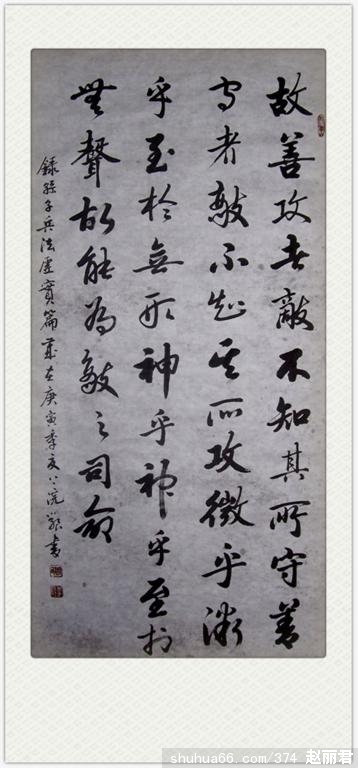 故善攻者敵不知其所守善
守者敵不知其所攻微乎微
乎至於無形神乎神乎至於
無聲故能為敵之司命
錄孫子兵法虛實篇歲在庚寅季夏書
shuhua66.com/374 赵丽君